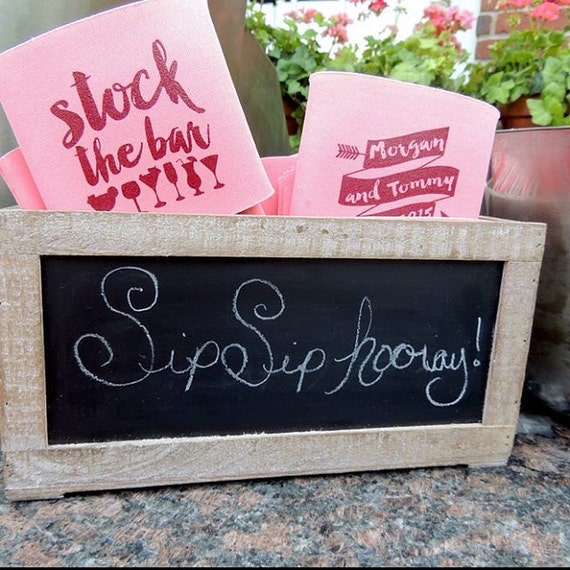 stock
the bar
Morgan
and Tommy
2015
Sip Sip hooray!